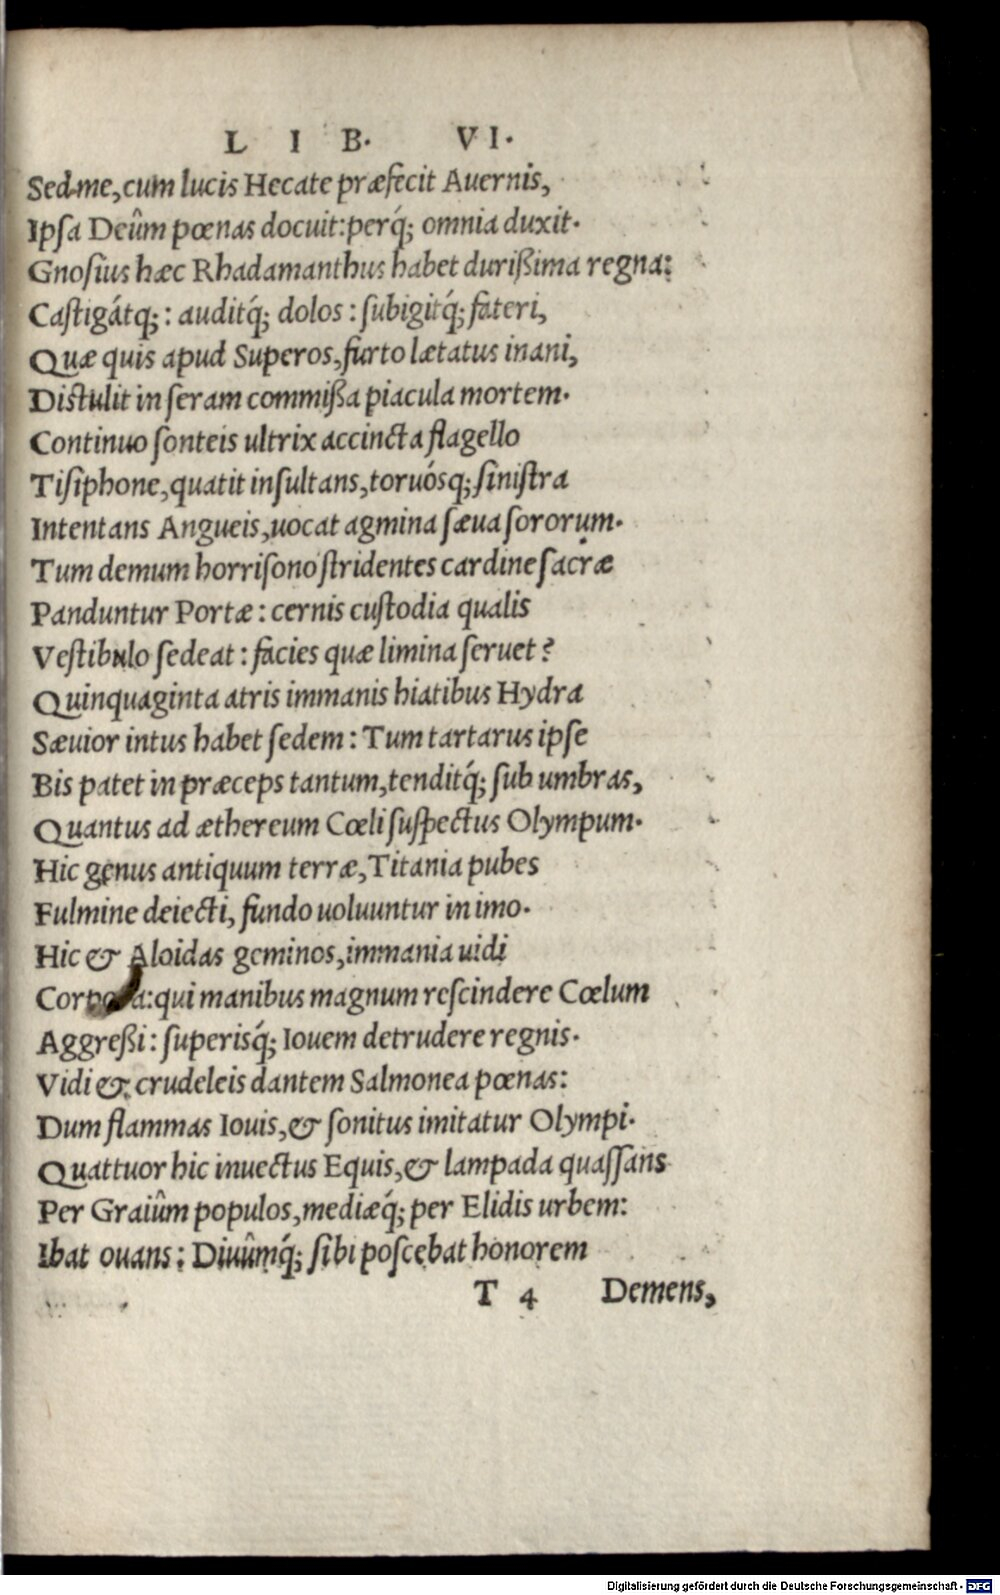 L I B. VI.
Sed me, cum lucis Hecate præfecit Auernis,
Ipsa Deûm pœnas docuit: perq́; omnia duxit.
Gnosius hæc Rhadamanthus habet durißima regna:
Castigátq;: auditq́; dolos: subigitq́; fateri,
Quæ quis apud Superos, furto lætatus inani,
Distulit in seram commißa piacula mortem.
Continuo sonteis ultrix accincta flagello
Tisiphone, quatit insultans, toruósq; sinistra
Intentans Angueis, uocat agmina sæua sororum.
Tum demum horrisono stridentes cardine sacræ
Panduntur Portæ: cernis custodia qualis
Vestibulo sedeat: facies quæ limina seruet?
Quinquaginta atris immanis hiatibus Hydra
Sæuior intus habet sedem: Tum tartarus ipse
Bis patet in præceps tantum, tenditq́; sub umbras,
Quantus ad æthereum Cœli suspectus Olympum.
Hic genus antiquum terræ, Titania pubes
Fulmine deiecti, fundo uoluuntur in imo.
Hic & Aloidas geminos, immania uidi
Corpora: qui manibus magnum rescindere Cœlum
Aggreßi: superisq́; Iouem detrudere regnis.
Vidi & crudeleis dantem Salmonea pœnas:
Dum flammas Iouis, & sonitus imitatur Olympi.
Quattuor hic inuectus Equis, & lampada quassans
Per Graiûm populos, mediæq́; per Elidis urbem:
Ibat ouans: Diuûmq́; sibi poscebat honorem
T 4 Demens,
Digitalisierung gefördert durch die Deutsche Forschungsgemeinschaft - DFG